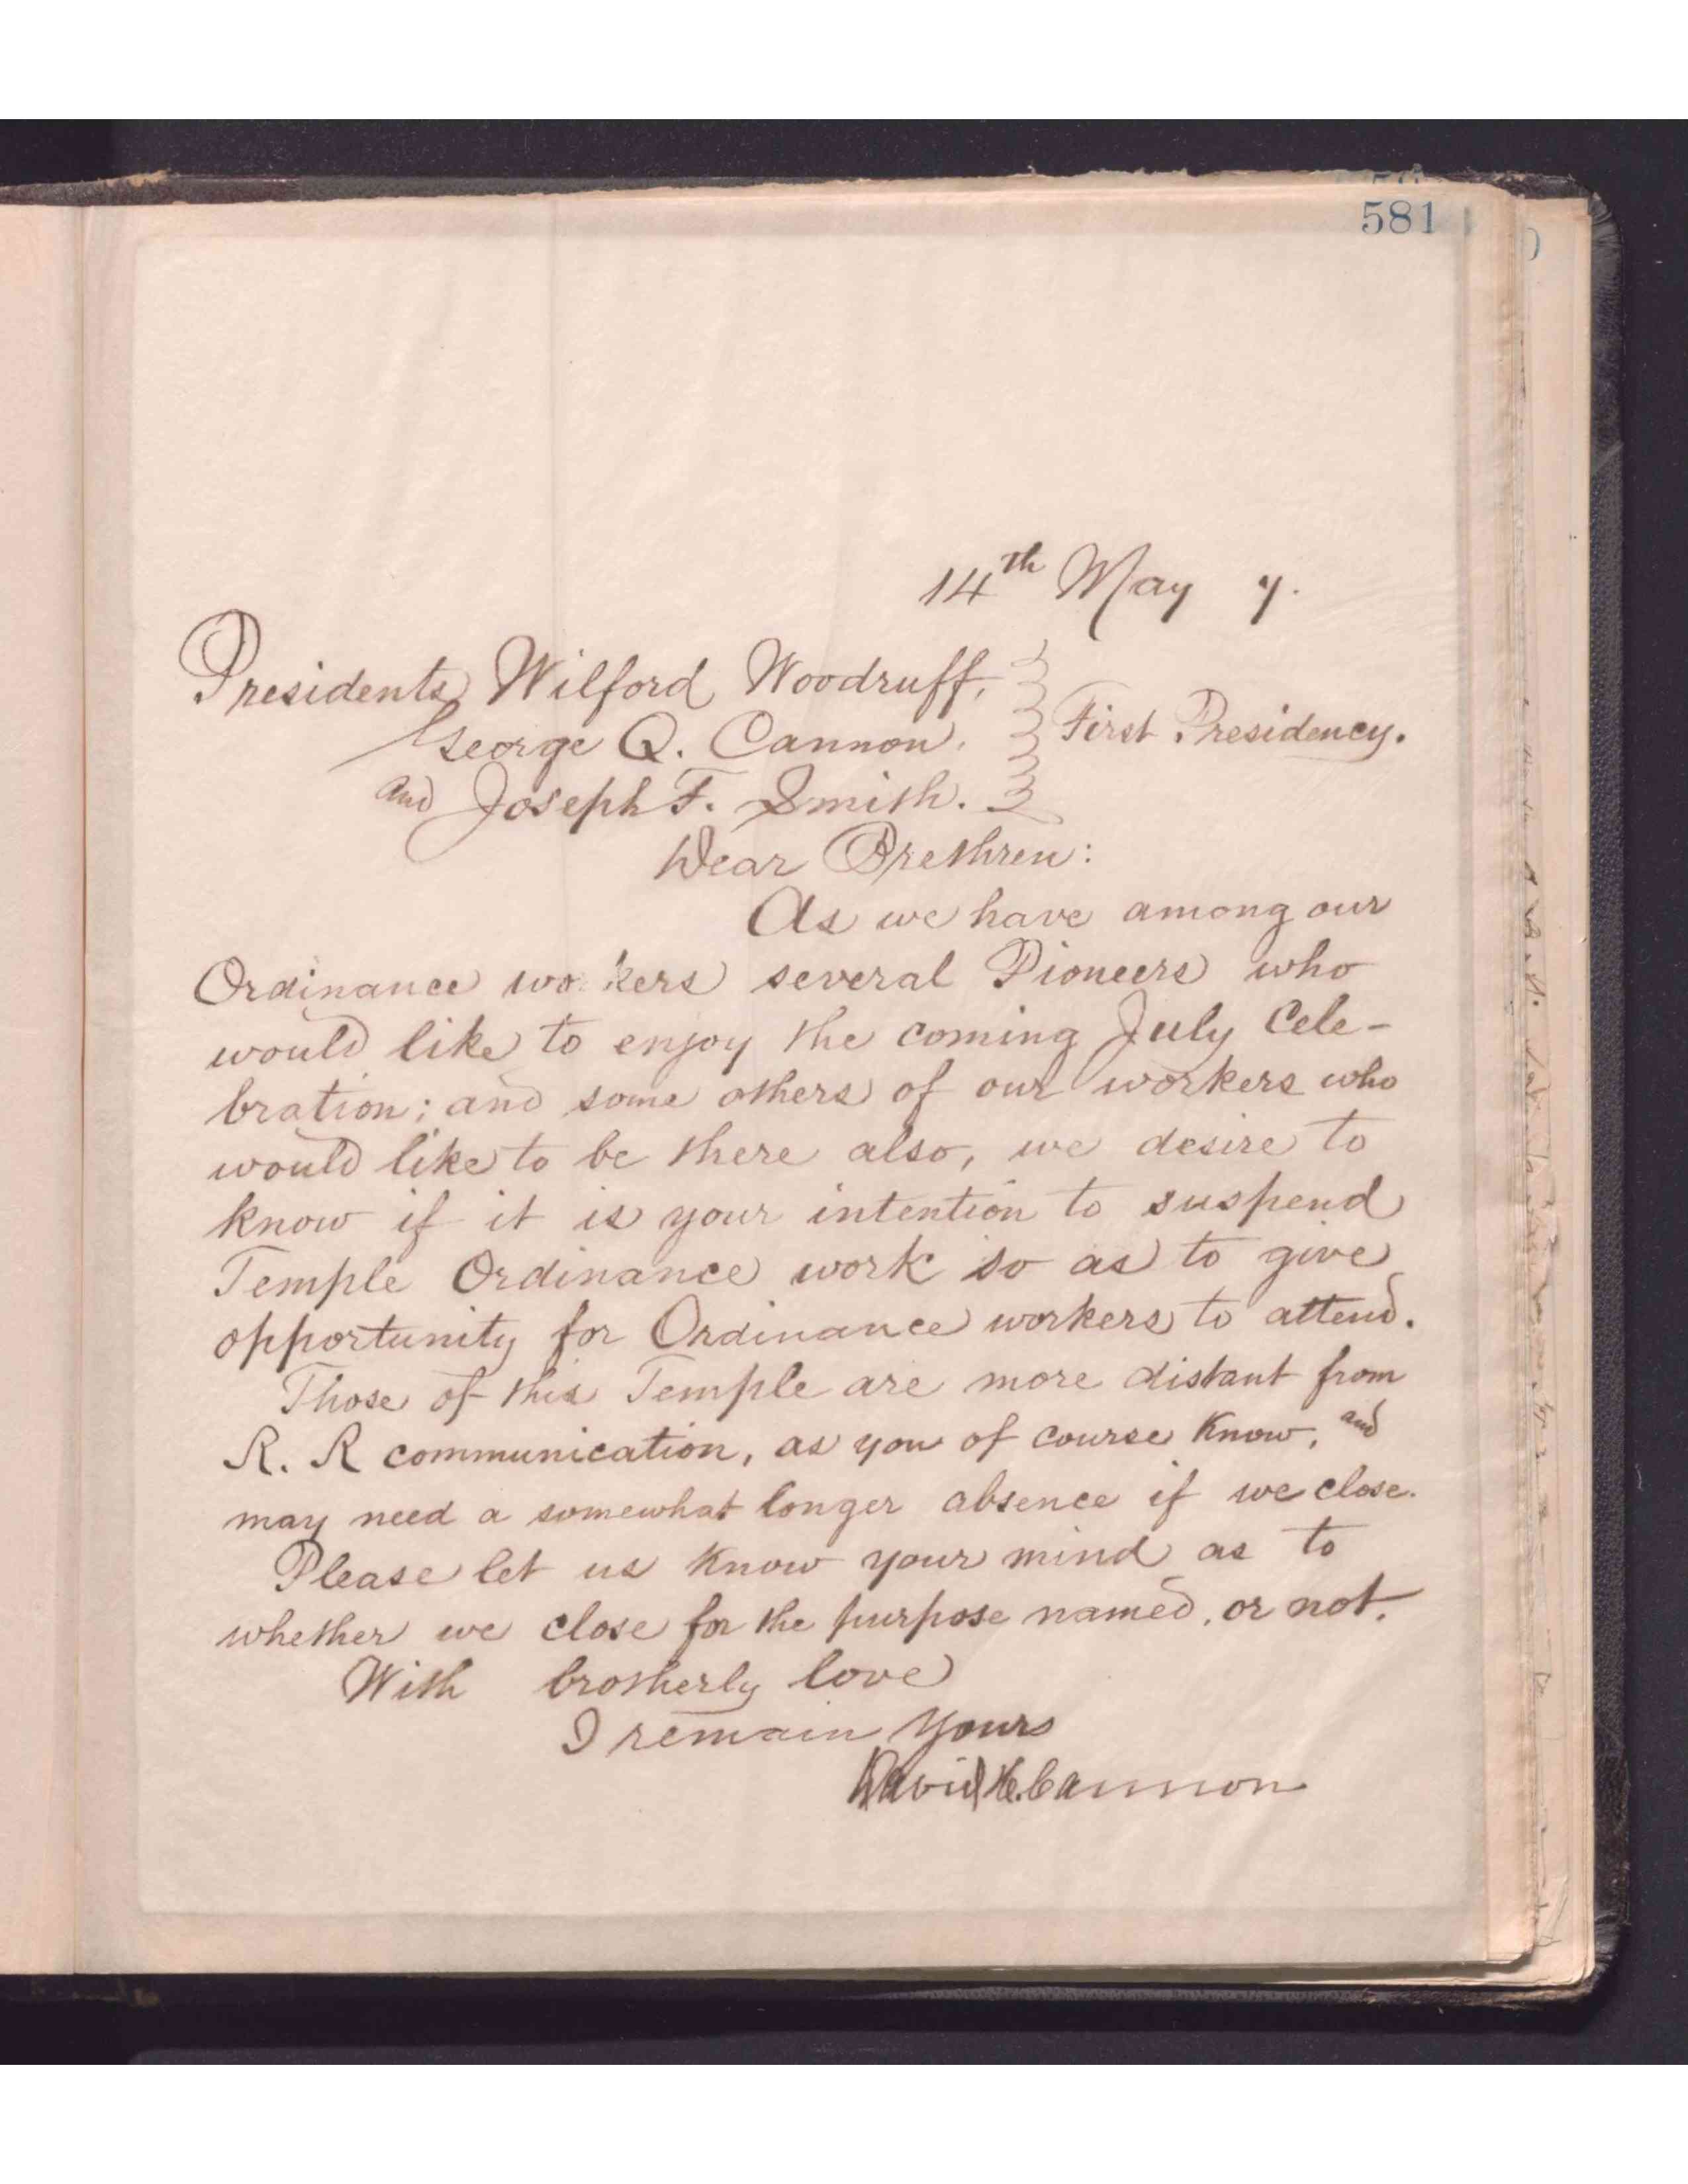 581
14th May 7.
Presidents Wilford Woodruff,
George Q. Cannon.
First Presidency.
and Joseph F. Smith.
Dear Brethren:
As we have among our
Ordinance wo kers several Pioneers who
would like to enjoy the coming July Cele-
bration; and some others of our workers who
would like to be there also, we desire to
know if it is your intention to suspend
Temple Ordinance work so as to give
opportunity for Ordinance workers to attend.
Those of this Temple are more distant from
R. R communication, as you of course know, and
may need a somewhat longer absence if we close.
Please let us know your mind as to
whether we close for the purpose named, or not.
With brotherly love
I remain Yours
David H. Cannon